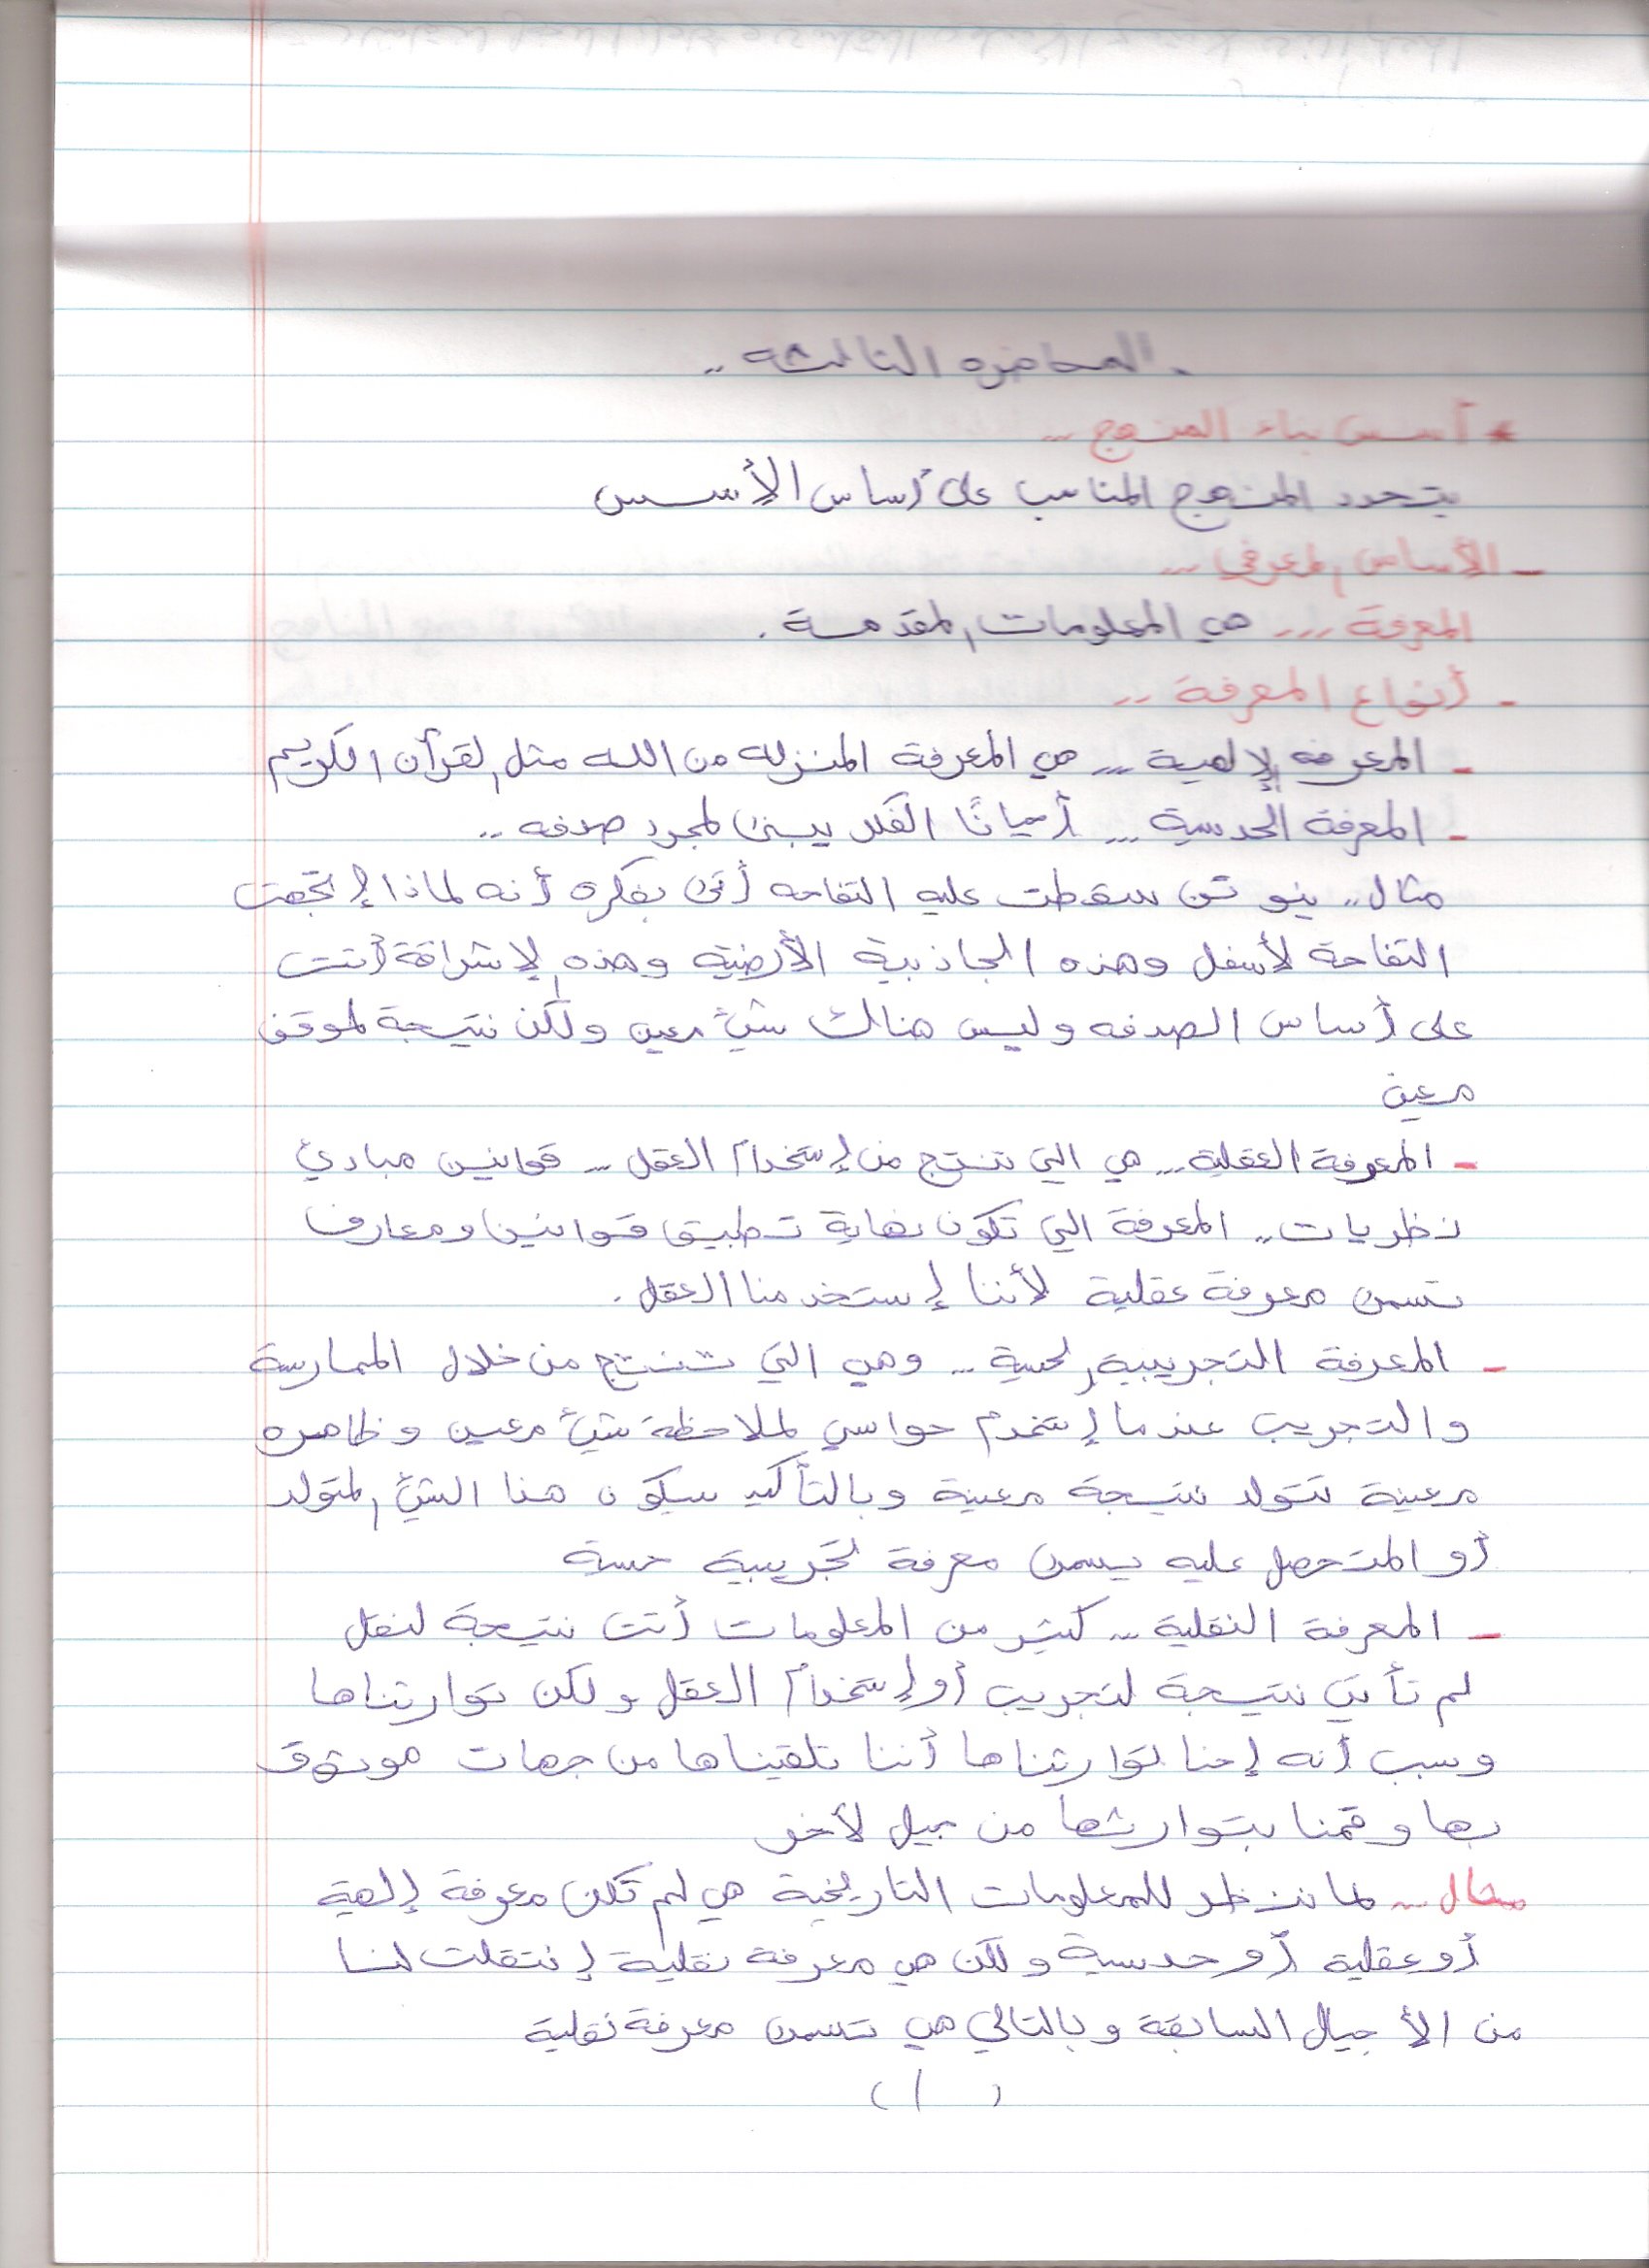 المحاضره الثالثه ..
* أسس بناء المنهج ...
يتحدد المنهج المناسب على أساس الأسس
- الأساس المعرفي ...
المعرفة ... هي المعلومات المقدمة .
- أنواع المعرفة ..
- المعرفه الإلهية ... هي المعرفة المنزله من الله مثل القرآن الكريم
- المعرفة الحدسية ... أحيانًا الفكر يبنى لمجرد صدفه ..
مثال .. نيوتن سقطت عليه التفاحه أتى بفكره أنه لماذا إتجهت
التفاحة لأسفل وهذه الجاذبية الأرضيه وهذه الإشراقة أتت
على أساس الصدفه وليس هناك شيء معين ولكن نتيجة لموقف
معين
- المعرفة العقلية ... هي التي تنتج من إستخدام العقل ... قوانين مبادئ
نظريات .. المعرفة التي تكون نهاية تطبيق قوانين ومعارف
تسمى معرفة عقلية لأننا إستخدمنا العقل .
- المعرفة التجريبية الحسية .. وهي التي تنتج من خلال الممارسة
والتجريب عندما إستخدم حواسي لملاحظة شيء معين وظاهره
معينة تتولد نتيجة معينة وبالتأكيد سيكون هذا الشيء المتولد
أو المتحصل عليه يسمى معرفة تجريبية حسية
- المعرفة النقلية .. كثير من المعلومات أتت نتيجة لنقل
لم تأتي نتيجة لتجريب أو إستخدام العقل ولكن توارثناها
وسبب أنه إحنا توارثناها أننا تلقيناها من جهات موثوق
بها وقمنا بتوارثها من جيل لأخر
مثال .. لما ننظر للمعلومات التاريخية هي لم تكن معرفة إلهية
أو عقلية أو حدسية ولكن هي معرفة نقلية إنتقلت لنا
من الأجيال السابقة وبالتالي هي تسمى معرفة نقلية
( ١ )